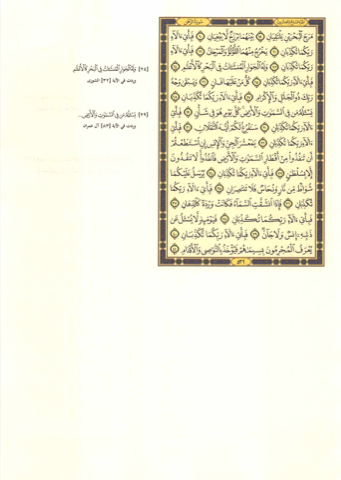 مَرَجَ ٱلْبَحْرَيْنِ يَلْتَقِيَانِ ۝١٩ بَيْنَهُمَا بَرْزَخٌ لَّا يَبْغِيَانِ ۝٢٠ فَبِأَىِّ ءَالَآءِ
رَبِّكُمَا تُكَذِّبَانِ ۝٢١ يَخْرُجُ مِنْهُمَا ٱللُّؤْلُؤُ وَٱلْمَرْجَانُ ۝٢٢ فَبِأَىِّ ءَالَآءِ
رَبِّكُمَا تُكَذِّبَانِ ۝٢٣ وَلَهُ ٱلْجَوَارِ ٱلْمُنشَـَٔاتُ فِى ٱلْبَحْرِ كَٱلْأَعْلَٰمِ ۝٢٤
فَبِأَىِّ ءَالَآءِ رَبِّكُمَا تُكَذِّبَانِ ۝٢٥ كُلُّ مَنْ عَلَيْهَا فَانٍ ۝٢٦ وَيَبْقَىٰ وَجْهُ
رَبِّكَ ذُو ٱلْجَلَٰلِ وَٱلْإِكْرَامِ ۝٢٧ فَبِأَىِّ ءَالَآءِ رَبِّكُمَا تُكَذِّبَانِ ۝٢٨
يَسْـَٔلُهُۥ مَن فِى ٱلسَّمَٰوَٰتِ وَٱلْأَرْضِ كُلَّ يَوْمٍ هُوَ فِى شَأْنٍ ۝٢٩ فَبِأَىِّ
ءَالَآءِ رَبِّكُمَا تُكَذِّبَانِ ۝٣٠ سَنَفْرُغُ لَكُمْ أَيُّهَ ٱلثَّقَلَانِ ۝٣١ فَبِأَىِّ
ءَالَآءِ رَبِّكُمَا تُكَذِّبَانِ ۝٣٢ يَٰمَعْشَرَ ٱلْجِنِّ وَٱلْإِنسِ إِنِ ٱسْتَطَعْتُمْ
أَن تَنفُذُوا۟ مِنْ أَقْطَارِ ٱلسَّمَٰوَٰتِ وَٱلْأَرْضِ فَٱنفُذُوا۟ لَا تَنفُذُونَ
إِلَّا بِسُلْطَٰنٍ ۝٣٣ فَبِأَىِّ ءَالَآءِ رَبِّكُمَا تُكَذِّبَانِ ۝٣٤ يُرْسَلُ عَلَيْكُمَا
شُوَاظٌ مِّن نَّارٍ وَنُحَاسٌ فَلَا تَنتَصِرَانِ ۝٣٥ فَبِأَىِّ ءَالَآءِ رَبِّكُمَا
تُكَذِّبَانِ ۝٣٦ فَإِذَا ٱنشَقَّتِ ٱلسَّمَآءُ فَكَانَتْ وَرْدَةً كَٱلدِّهَانِ ۝٣٧
فَبِأَىِّ ءَالَآءِ رَبِّكُمَا تُكَذِّبَانِ ۝٣٨ فَيَوْمَئِذٍ لَّا يُسْـَٔلُ عَن
ذَنۢبِهِۦٓ إِنسٌ وَلَا جَآنٌّ ۝٣٩ فَبِأَىِّ ءَالَآءِ رَبِّكُمَا تُكَذِّبَانِ ۝٤٠
يُعْرَفُ ٱلْمُجْرِمُونَ بِسِيمَٰهُمْ فَيُؤْخَذُ بِٱلنَّوَٰصِى وَٱلْأَقْدَامِ ۝٤١
[٢٤] وَلَهُ ٱلْجَوَارِ ٱلْمُنشَـَٔاتُ فِى ٱلْبَحْرِ كَٱلْأَعْلَٰمِ
وردت في الآية [٣٢] الشورى.
[٢٩] يَسْـَٔلُهُۥ مَن فِى ٱلسَّمَٰوَٰتِ وَٱلْأَرْضِ...
وردت في الآية [٨٣] آل عمران